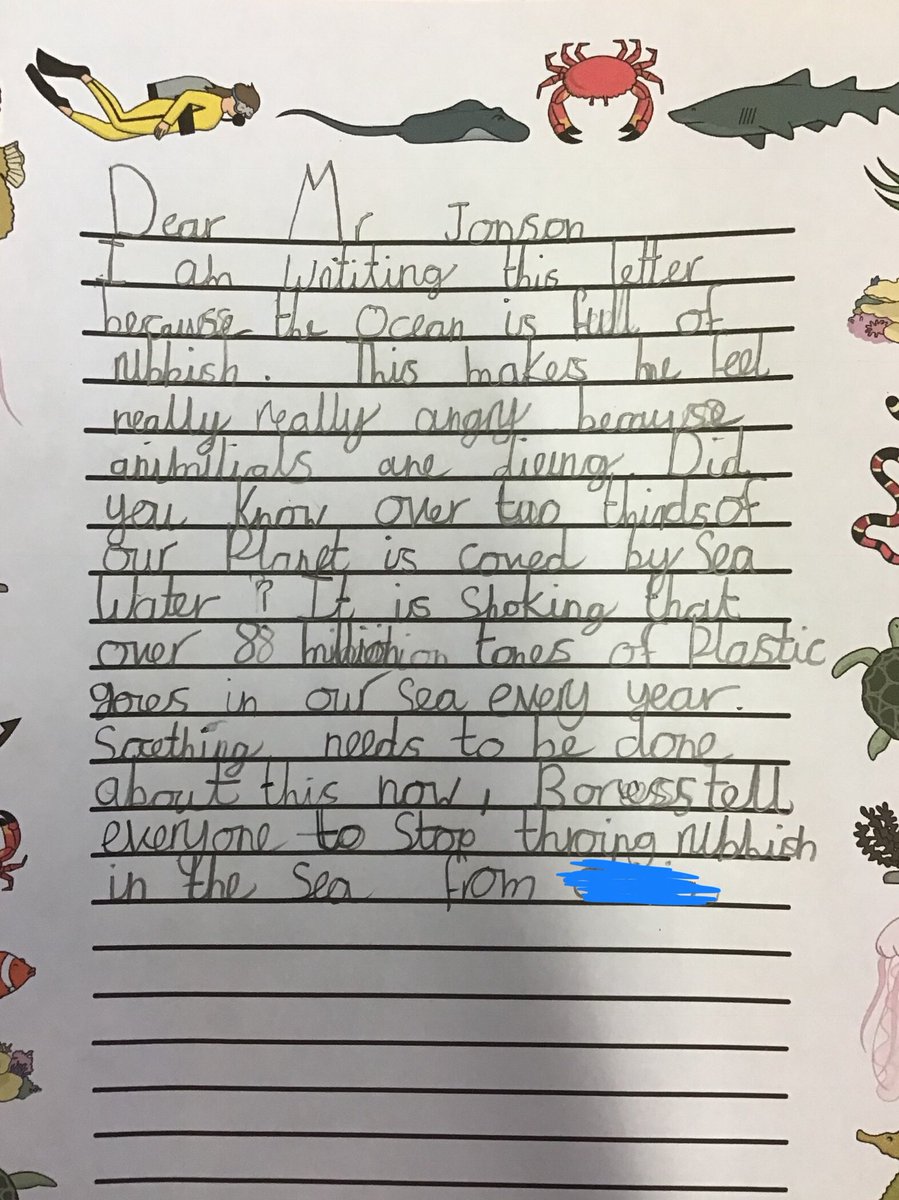 Dear Mr Jonson
I am writiting this letter
because the Ocean is full of
rubbish. This makes me feel
really really angry because
are dieing. Did
you know over two thirds of
our Planet is coved by Sea
Water? It is Shoking that
over 88 tones of Plastic
goes in our Sea every year.
Soething needs to be done
about this now, Boress tell
everyone to Stop throing rubbish
in the Sea from